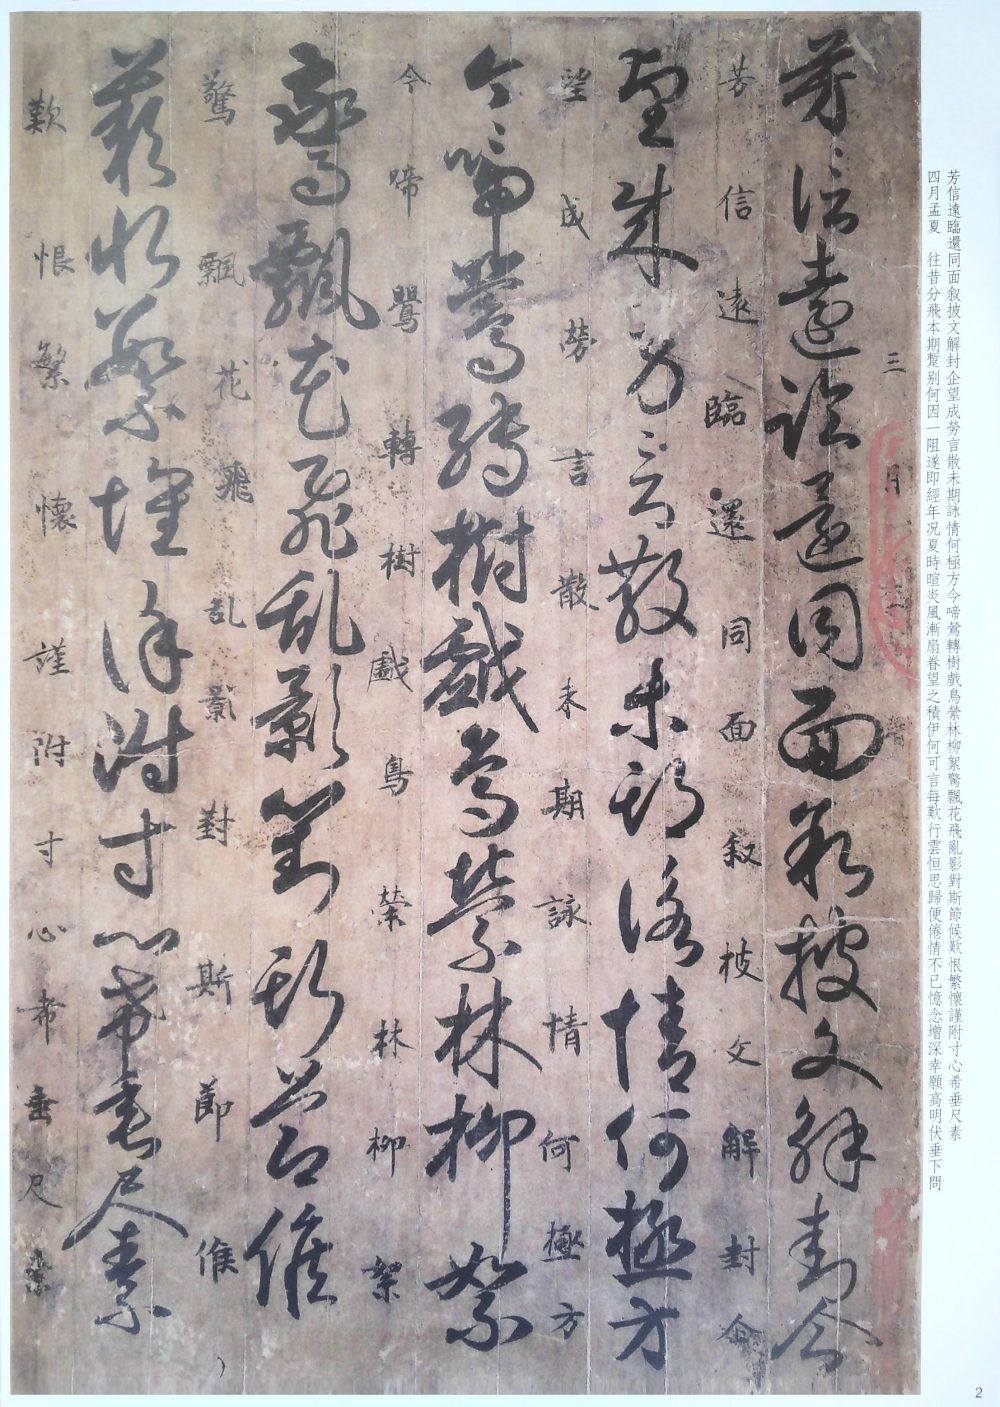 芳信遠臨還同面叙披文解封企望成勞言散未期詠情何極方今啼鶯轉樹戲鳥縈林柳絮驚飄花飛亂影對斯節候歎恨繁懷謹附寸心希垂尺素
四月孟夏　往昔分飛本期蹔别何因一阻遂即經年况夏時暄炎風漸扇眷望之積伊何可言每歎行雲恒思歸便倦情不已憶念增深幸願高明伏垂下問
三月
芳信遠臨還同面叙披文解封企
芳信遠臨還同面叙披文解封企
望成勞言散未期詠情何極方
望成勞言散未期詠情何極方
今啼鶯轉樹戲鳥縈林柳絮
今啼鸎轉樹戲鳥縈林柳絮
驚飄花飛乱影對斯節候
驚飄花飛乱影對斯節候
歎恨繁懷謹附寸心希垂尺素
歎恨繁懷謹附寸心希垂尺素
2